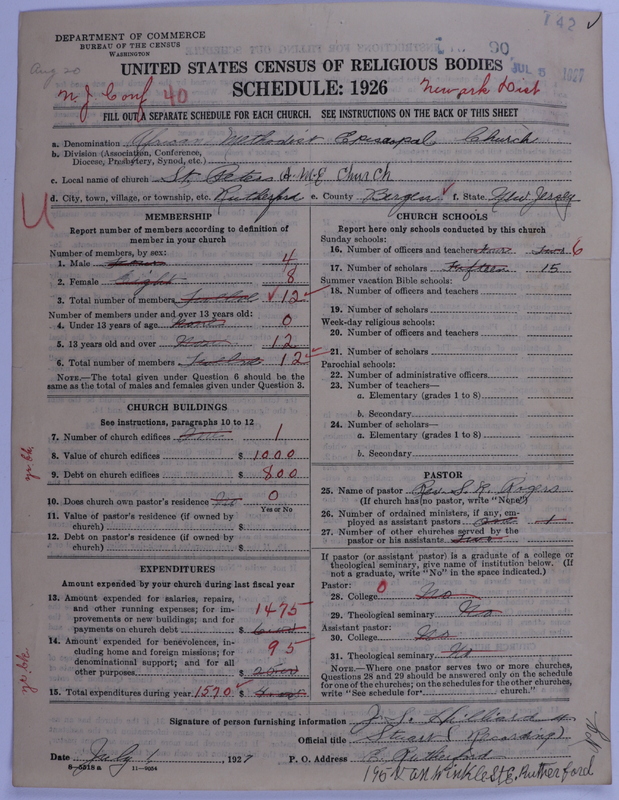 142 ✓
DEPARTMENT OF COMMERCE
BUREAU OF THE CENSUS
WASHINGTON
Aug 20
90
JUL 5 1927
UNITED STATES CENSUS OF RELIGIOUS BODIES
SCHEDULE: 1926
N. J. Conf 40
Newark Dist
FILL OUT A SEPARATE SCHEDULE FOR EACH CHURCH. SEE INSTRUCTIONS ON THE BACK OF THIS SHEET
a. Denomination African Methodist Episcopal Church
b. Division (Association, Conference, Diocese, Presbytery, Synod, etc.)
c. Local name of church St. Peters A.M.E Church
d. City, town, village, or township, etc. Rutherford e. County Bergen f. State New Jersey
MEMBERSHIP
Report number of members according to definition of member in your church
Number of members, by sex:
1. Male 4
2. Female eight 8
3. Total number of members twelve 12
Number of members under and over 13 years old:
4. Under 13 years of age none 0
5. 13 years old and over 12
6. Total number of members twelve 12
NOTE.—The total given under Question 6 should be the same as the total of males and females given under Question 3.
CHURCH BUILDINGS
See instructions, paragraphs 10 to 12
7. Number of church edifices one 1
8. Value of church edifices $ 1000
9. Debt on church edifices $ 800
10. Does church own pastor's residence No 0
Yes or No
11. Value of pastor's residence (if owned by church) $
12. Debt on pastor's residence (if owned by church) $
EXPENDITURES
Amount expended by your church during last fiscal year
13. Amount expended for salaries, repairs, and other running expenses; for improvements or new buildings; and for payments on church debt $ 1475
14. Amount expended for benevolences, including home and foreign missions; for denominational support; and for all other purposes $ 95
15. Total expenditures during year 1570 $
CHURCH SCHOOLS
Report here only schools conducted by this church
Sunday schools:
16. Number of officers and teachers 6
17. Number of scholars fifteen 15
Summer vacation Bible schools:
18. Number of officers and teachers
19. Number of scholars
Week-day religious schools:
20. Number of officers and teachers
21. Number of scholars
Parochial schools:
22. Number of administrative officers
23. Number of teachers—
a. Elementary (grades 1 to 8)
b. Secondary
24. Number of scholars—
a. Elementary (grades 1 to 8)
b. Secondary
PASTOR
25. Name of pastor Rev. S. R. Rogers
(If church has no pastor, write "None")
26. Number of ordained ministers, if any, employed as assistant pastors one 1
27. Number of other churches served by the pastor or his assistants
If pastor (or assistant pastor) is a graduate of a college or theological seminary, give name of institution below. (If not a graduate, write "No" in the space indicated.)
Pastor: 0
28. College No
29. Theological seminary No
Assistant pastor:
30. College No
31. Theological seminary No
NOTE.—Where one pastor serves two or more churches, Questions 28 and 29 should be answered only on the schedule for one of the churches; on the schedules for the other churches, write "See schedule for church."
Signature of person furnishing information J. S. Hilliard
Official title Stuart (Recording)
Date July 1, 1927 P. O. Address E. Rutherford N.J.
8—5518 a 11—9054
195 Van Winkle St E. Rutherford